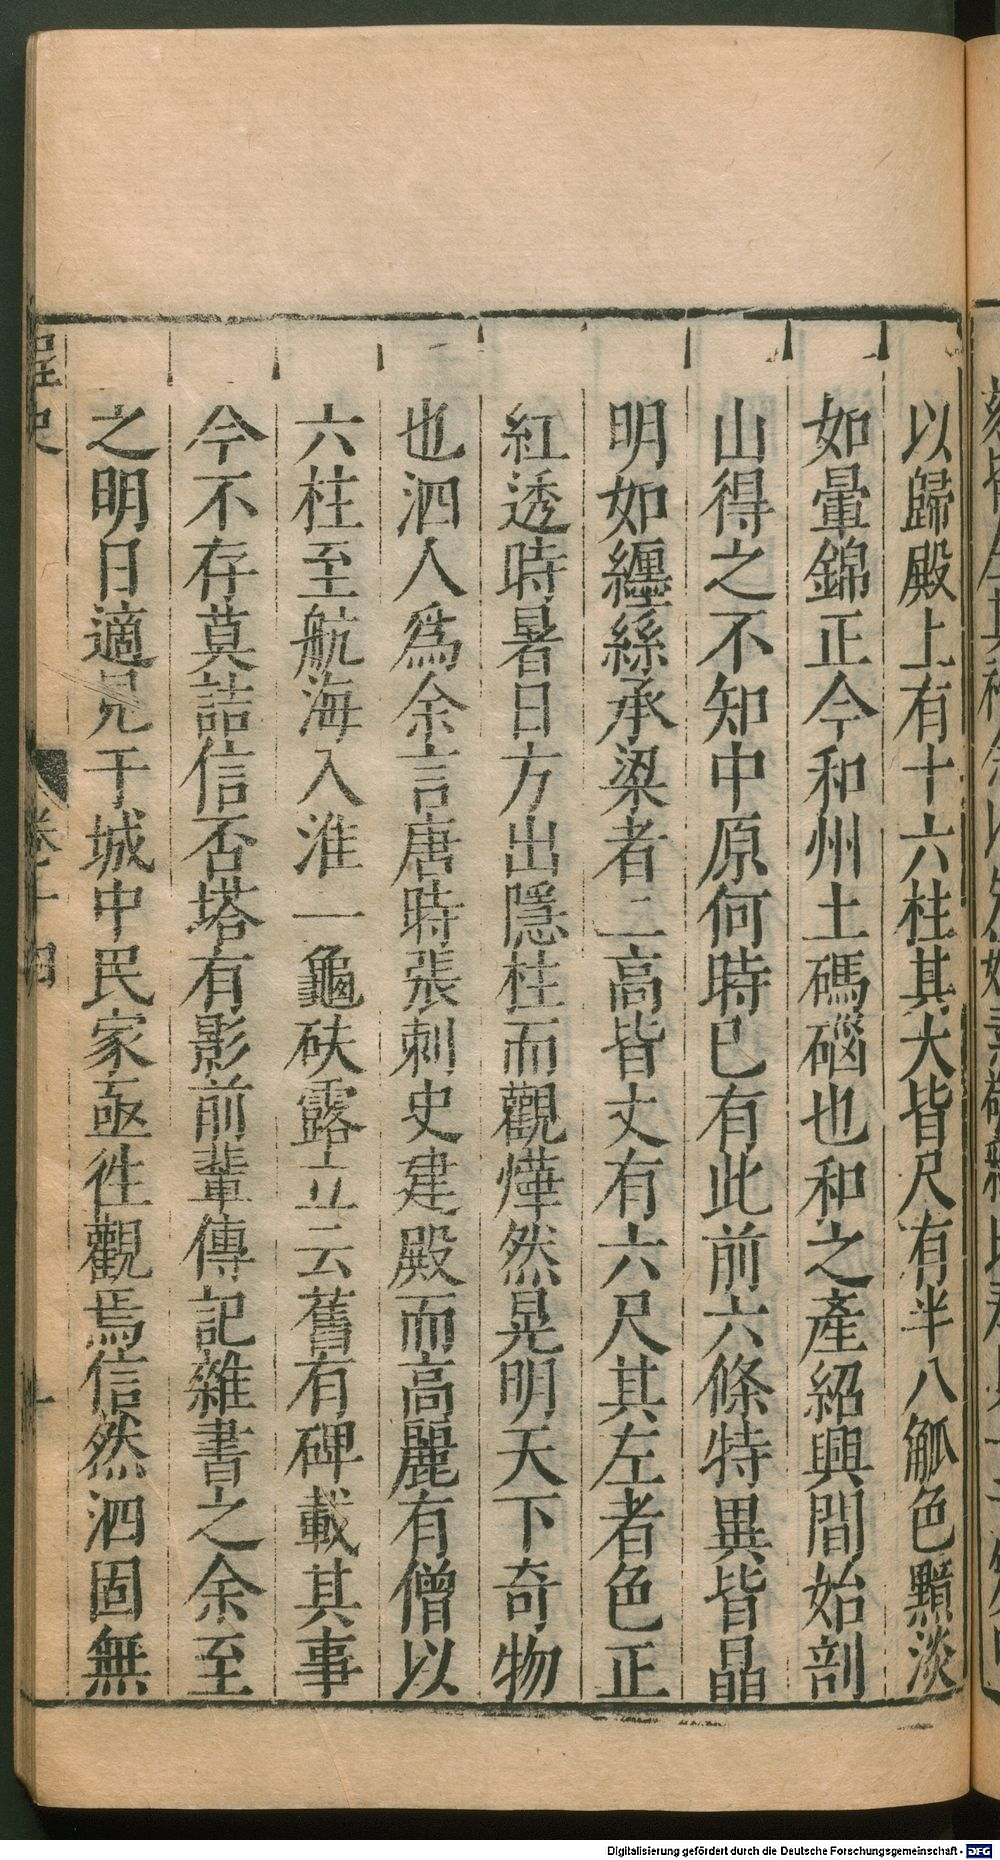 以歸殿上有十六柱其大皆尺有半八觚色黯淡
如暈錦正今和州土碼碯也和之產紹興間始剖
山得之不知中原何時已有此前六條特異皆晶
明如纏絲承梁者二高皆丈有六尺其左者色正
紅透時暑日方出隱柱而觀燁然晃明天下奇物
也泗人爲余言唐時張刺史建殿而高麗有僧以
六柱至航海入淮一龜砆露立云舊有碑載其事
今不存莫詰信否塔有影前輩傳記雜書之余至
之明日適見于城中民家亟徃觀焉信然泗固無
桯史
卷十四
十
Digitalisierung gefördert durch die Deutsche Forschungsgemeinschaft - DFG